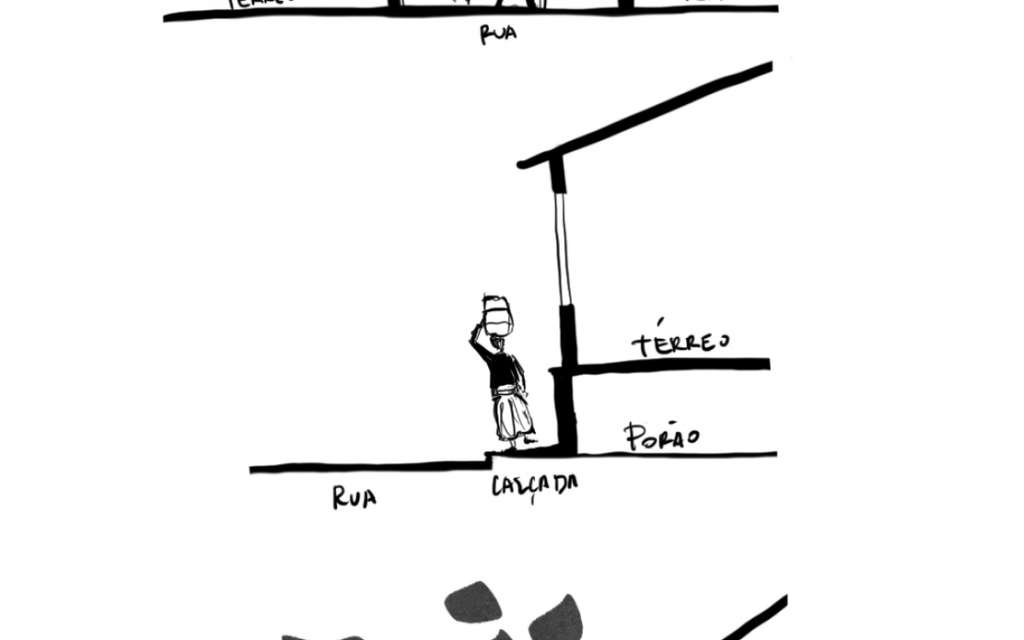 RUA
TÉRREO
PORÃO
RUA
CALÇADA